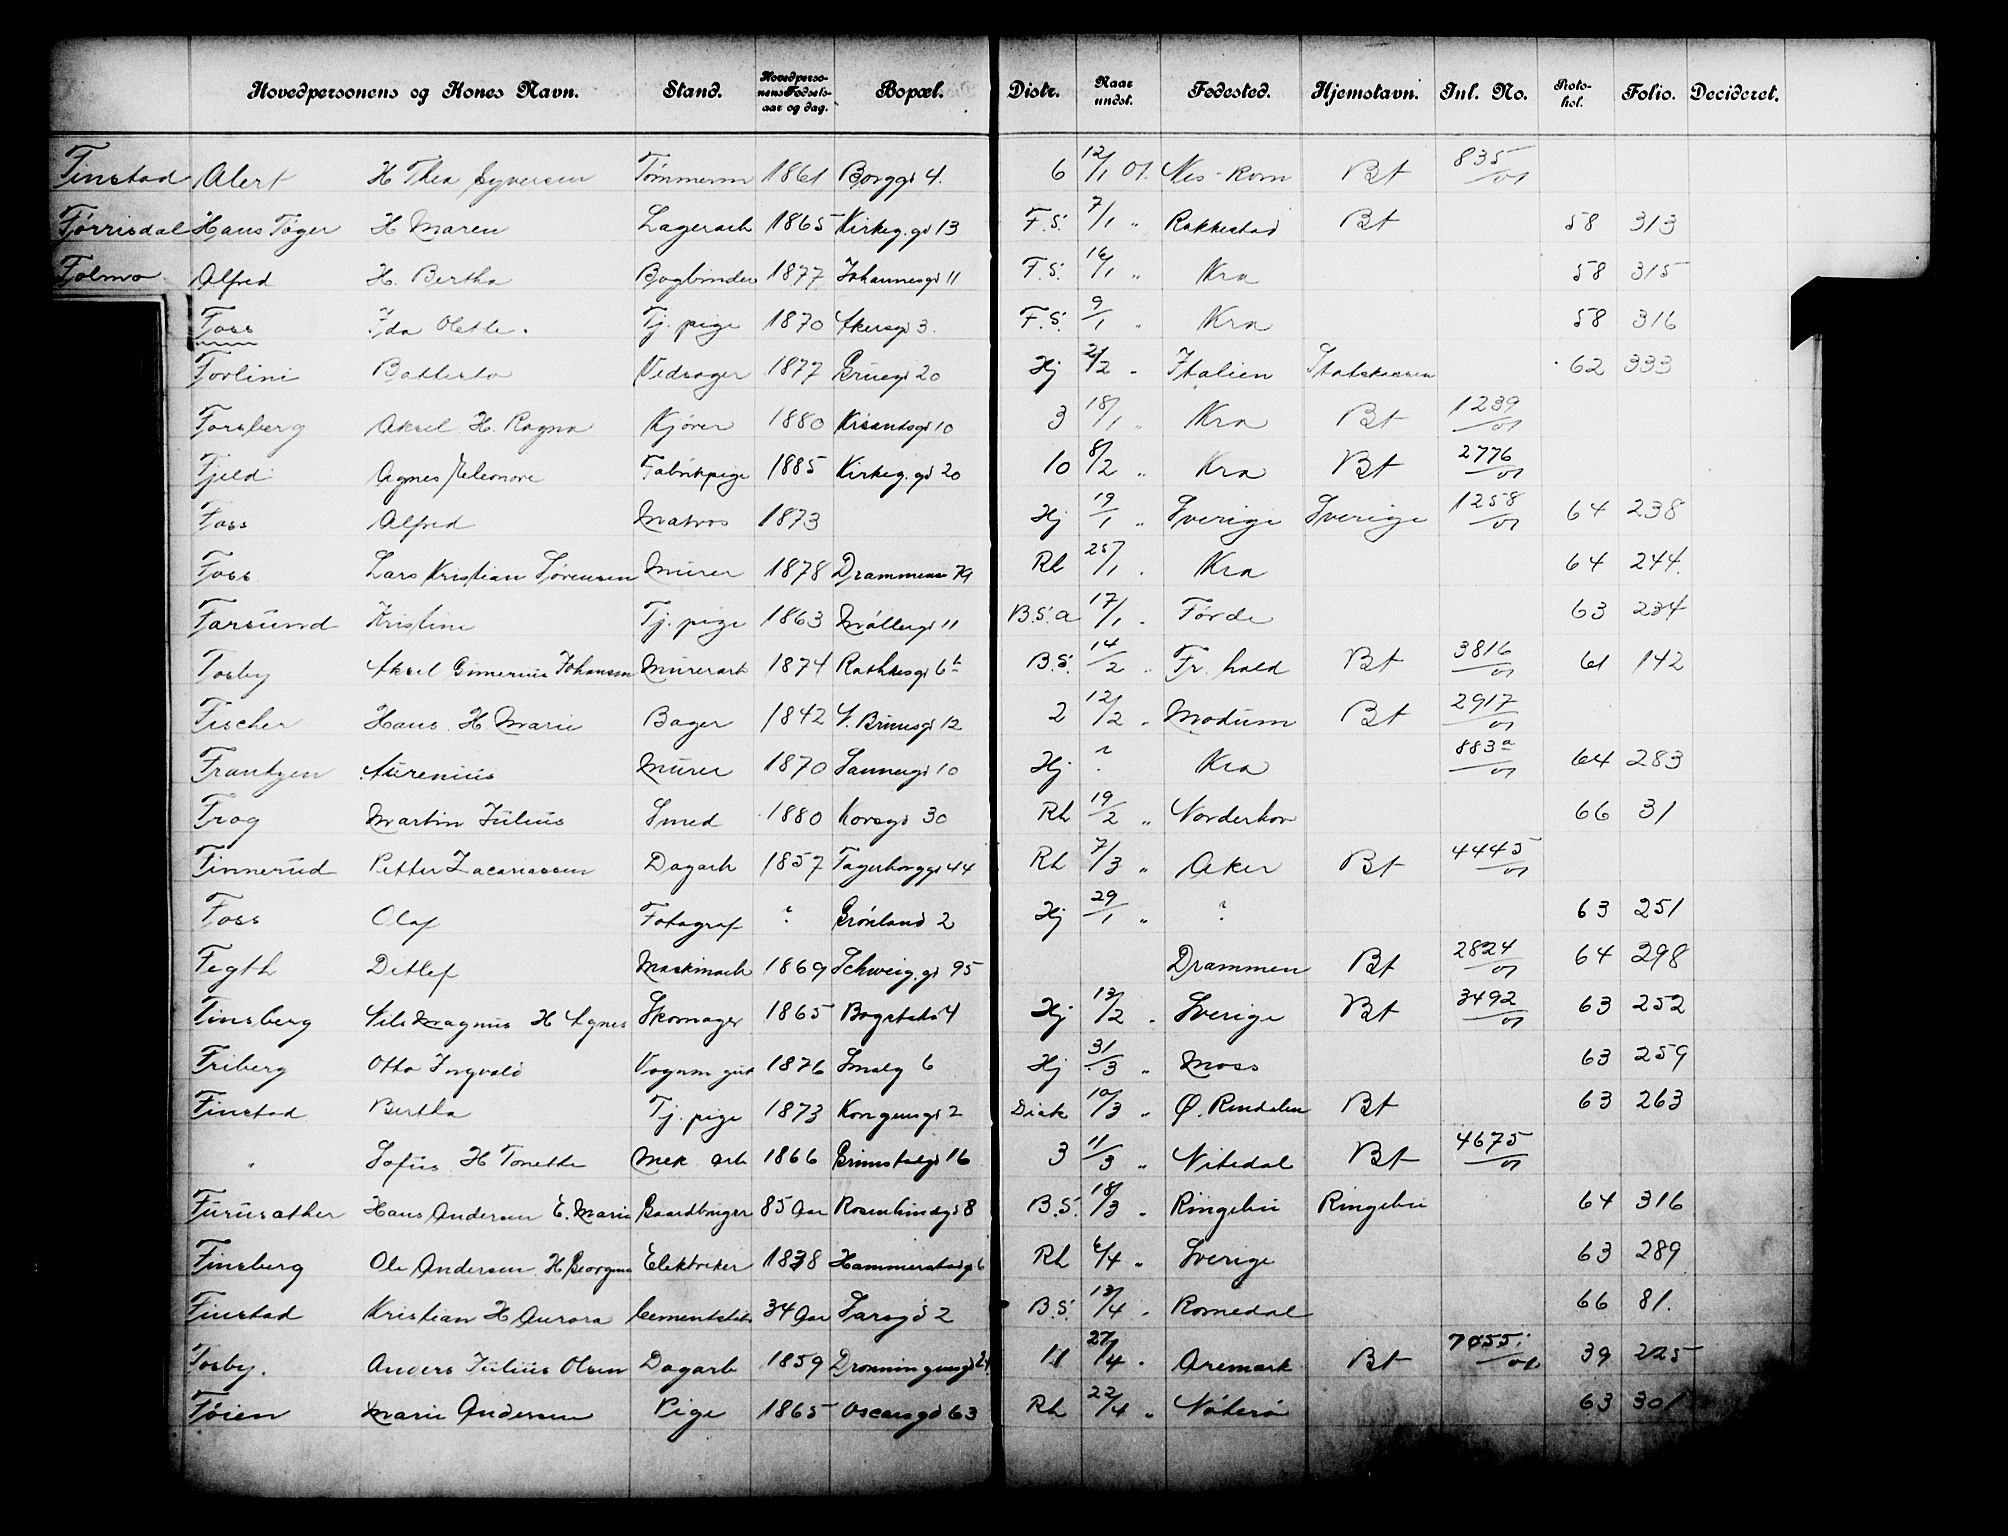 Hovedpersonens og Kones Navn. Stand. Hovedpersonens Fødselsaar og dag. Bopæl. Distr. Naar undst. Fødested. Hjemstavn. Inl. No. Protokol. Folio. Decideret.
Finstad Alert H Thea Syversen Tømmerm 1861 Borggd 4. 6 12/1 01. Nes - Rom Bt 835/01
Fjørrisdal Hans Tøger H Maren Lagerarb 1865 Kirkeg.gd 13 F.S. 7/1 " Rakkestad Bt 58 313
Folmo Alfred H. Bertha Bogbinder 1877 Johannesgd 11 F.S. 16/1 " Kra 58 315
Foss Ida Olette. Tj. pige 1870 Akersgd 3. F.S. 9/1 " Kra 58 316
Forlini Battesta Vedsager 1877 Gruegd 20 Hj 21/2 " Italien Statskassen 62 333
Forsberg Aksel H. Ragna Kjører 1880 Krsandsgd 10 3 18/1 " Kra Bt 1239/01
Fjeld Agnes Eleonore Fabrikpige 1885 Kirkeg.gd 20 10 8/2 " Kra Bt 2776/01
Foss Alfred Matros 1873 Hj 19/1 " Sverige Sverige 1258/01 64 238
Foss Lars Kristian Sørensen Murer 1878 Drammensv 79 Rh 25/1 . Kra 64 244.
Farsund Kristine Tj. pige 1863 Møllergd 11 B.S. a 17/1 . Førde 63 234
Fosby Aksel Gunerius Johansen Murerarb 1874 Rathkesgd 6b B.S. 14/2 " Fr. hald Bt 3816/01 61 142
Fischer Hans. H Marie Bager 1842 V. Brunsgd 12 2 12/2 " Modum Bt 2917/01
Frantzen Aurenius Murer 1870 Sannergd 10 Hj ? Kra 883a/01 64 283
Frog Martin Julius Smed 1880 Korsgd 30 Rh 19/2 " Norderhov 66 31
Finnerud Petter Zacariassen Dagarb 1857 Fagerborggd 44 Rh 7/3 " Aker Bt 4445/01
Foss Olaf Fotograf ? Grønland 2 Hj 29/1 " ? 63 251
Fegth Ditlef Maskinarb 1869 Schweig.gd 95 Drammen Bt 2824/01 64 298
Finsberg Nils Magnus H Agnes Skomager 1865 Bogstadv 4 Hj 13/2 . Sverige Bt 3492/01 63 252
Friberg Otto Ingvald Vognm gut 1876 Smalg 6 Hj 31/3 " Moss 63 259
Finstad Bertha Tj. pige 1873 Kongensgd 2 Diak 10/3 " Ø. Rendalen Bt 63 263
" Sofus H Tonette Mek arb 1866 Grimstadgd 16 3 11/3 " Nitedal Bt 4675/01
Furusæther Hans Andersen E. Marie Gaardbruger 85 Aar Rosenlundgd 8 B.S. 18/3 . Ringebu Ringebu 64 316
Finsberg Ole Andersen H Georgine Elektriker 1838 Hammerstadgd 6 Rh 6/4 " Sverige 63 289
Finstad Kristian H Aurora Cementstøb 34 Aar Sarsgd 2 B.S. 13/4 . Romedal 66 81.
Fosby. Anders Julius Olsen Dagarb 1859 Dronningensgd 24 11 27/4 . Aremark Bt 7055/01 39 225
Føien Marie Andersen Pige 1865 Oscarsgd 63 Rh 22/4 " Nøterø 63 301